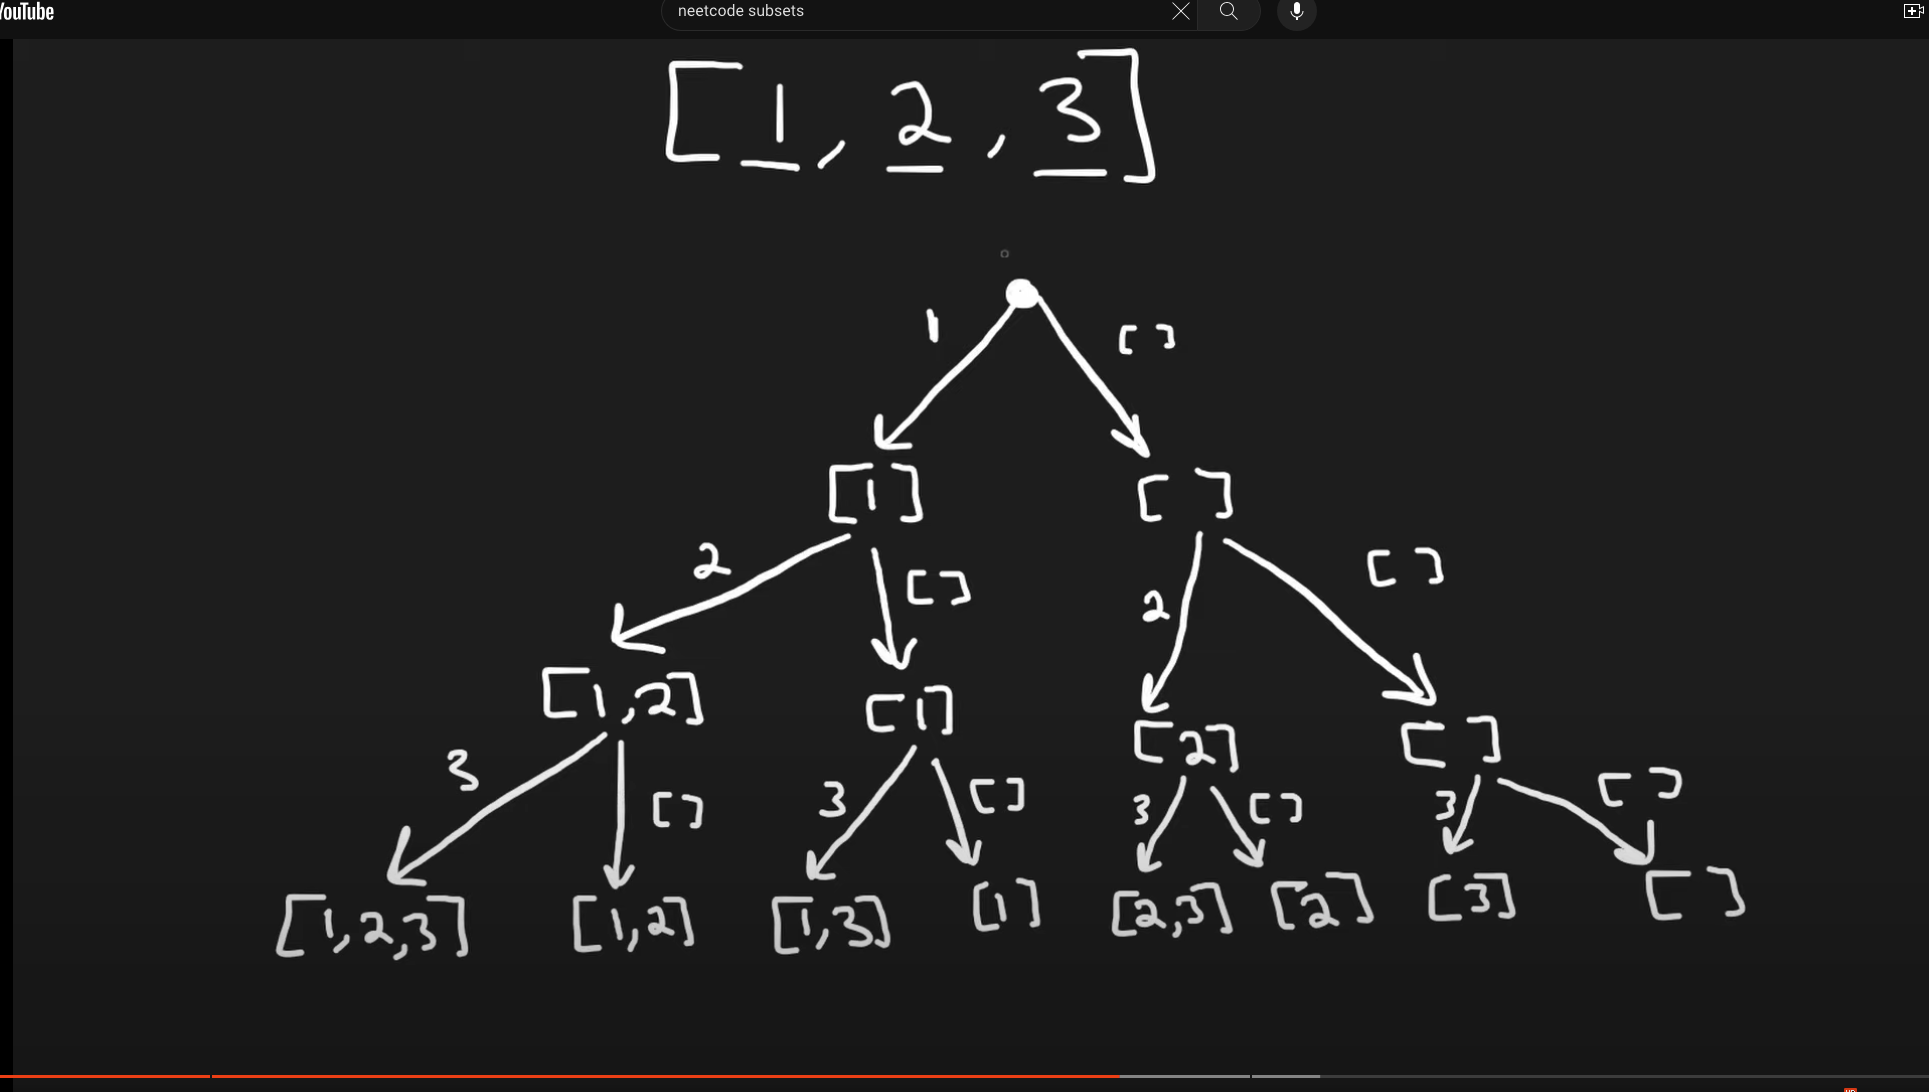 YouTube
neetcode subsets
[1, 2, 3]
1 [ ]
[1] [ ]
2 [ ] 2 [ ]
[1,2] [1] [2] [ ]
3 [ ] 3 [ ] 3 [ ] 3 [ ]
[1,2,3] [1,2] [1,3] [1] [2,3] [2] [3] [ ]